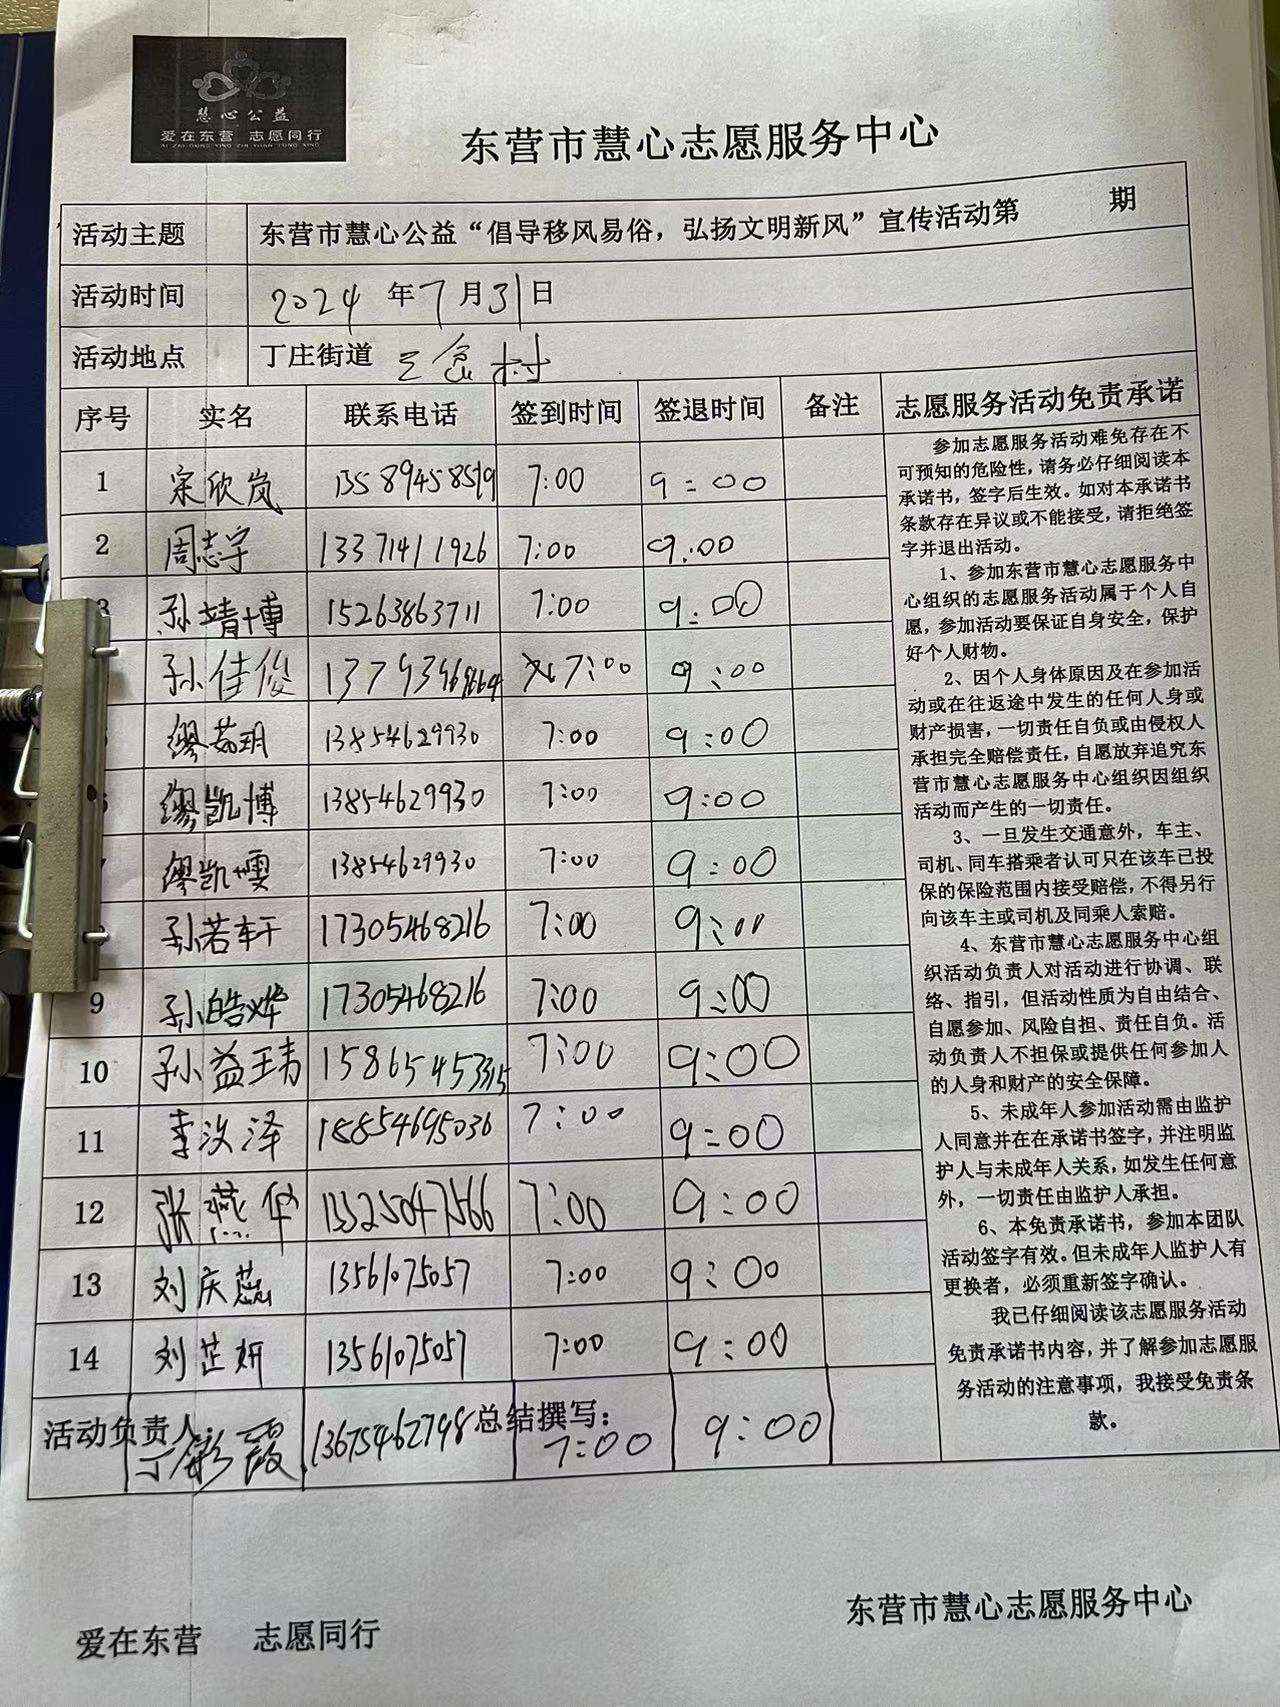 慧心公益
爱在东营 志愿同行
AI ZAI DONG YING ZHI YUAN TONG XING
东营市慧心志愿服务中心
活动主题 东营市慧心公益“倡导移风易俗，弘扬文明新风”宣传活动第 期
活动时间 2024 年 7 月 31 日
活动地点 丁庄街道 村
序号 实名 联系电话 签到时间 签退时间 备注
1 宋欣岚 13589458519 7:00 9:00
2 周志宇 13371411926 7:00 9:00
3 孙靖博 15263863711 7:00 9:00
孙佳俊 7:00 9:00
缪茹玥 13854629930 7:00 9:00
6 缪凯博 13854629930 7:00 9:00
7 缪凯 13854629930 7:00 9:00
孙若轩 17305468216 7:00 9:00
9 孙皓烨 17305468216 7:00 9:00
10 孙益玮 7:00 9:00
11 李汶泽 18854695036 7:00 9:00
12 张燕华 13325047566 7:00 9:00
13 刘庆蕊 13561075057 7:00 9:00
14 刘芷妍 13561075057 7:00 9:00
活动负责人 丁彩霞 13675462798 总结撰写： 7:00 9:00
志愿服务活动免责承诺
参加志愿服务活动难免存在不
可预知的危险性，请务必仔细阅读本
承诺书，签字后生效。如对本承诺书
条款存在异议或不能接受，请拒绝签
字并退出活动。
1、参加东营市慧心志愿服务中
心组织的志愿服务活动属于个人自
愿，参加活动要保证自身安全，保护
好个人财物。
2、因个人身体原因及在参加活
动或在往返途中发生的任何人身或
财产损害，一切责任自负或由侵权人
承担完全赔偿责任，自愿放弃追究东
营市慧心志愿服务中心组织因组织
活动而产生的一切责任。
3、一旦发生交通意外，车主、
司机、同车搭乘者认可只在该车已投
保的保险范围内接受赔偿，不得另行
向该车主或司机及同乘人索赔。
4、东营市慧心志愿服务中心组
织活动负责人对活动进行协调、联
络、指引，但活动性质为自由结合、
自愿参加、风险自担、责任自负。活
动负责人不担保或提供任何参加人
的人身和财产的安全保障。
5、未成年人参加活动需由监护
人同意并在在承诺书签字，并注明监
护人与未成年人关系，如发生任何意
外，一切责任由监护人承担。
6、本免责承诺书，参加本团队
活动签字有效。但未成年人监护人有
更换者，必须重新签字确认。
我已仔细阅读该志愿服务活动
免责承诺书内容，并了解参加志愿服
务活动的注意事项，我接受免责条
款。
东营市慧心志愿服务中心
爱在东营 志愿同行